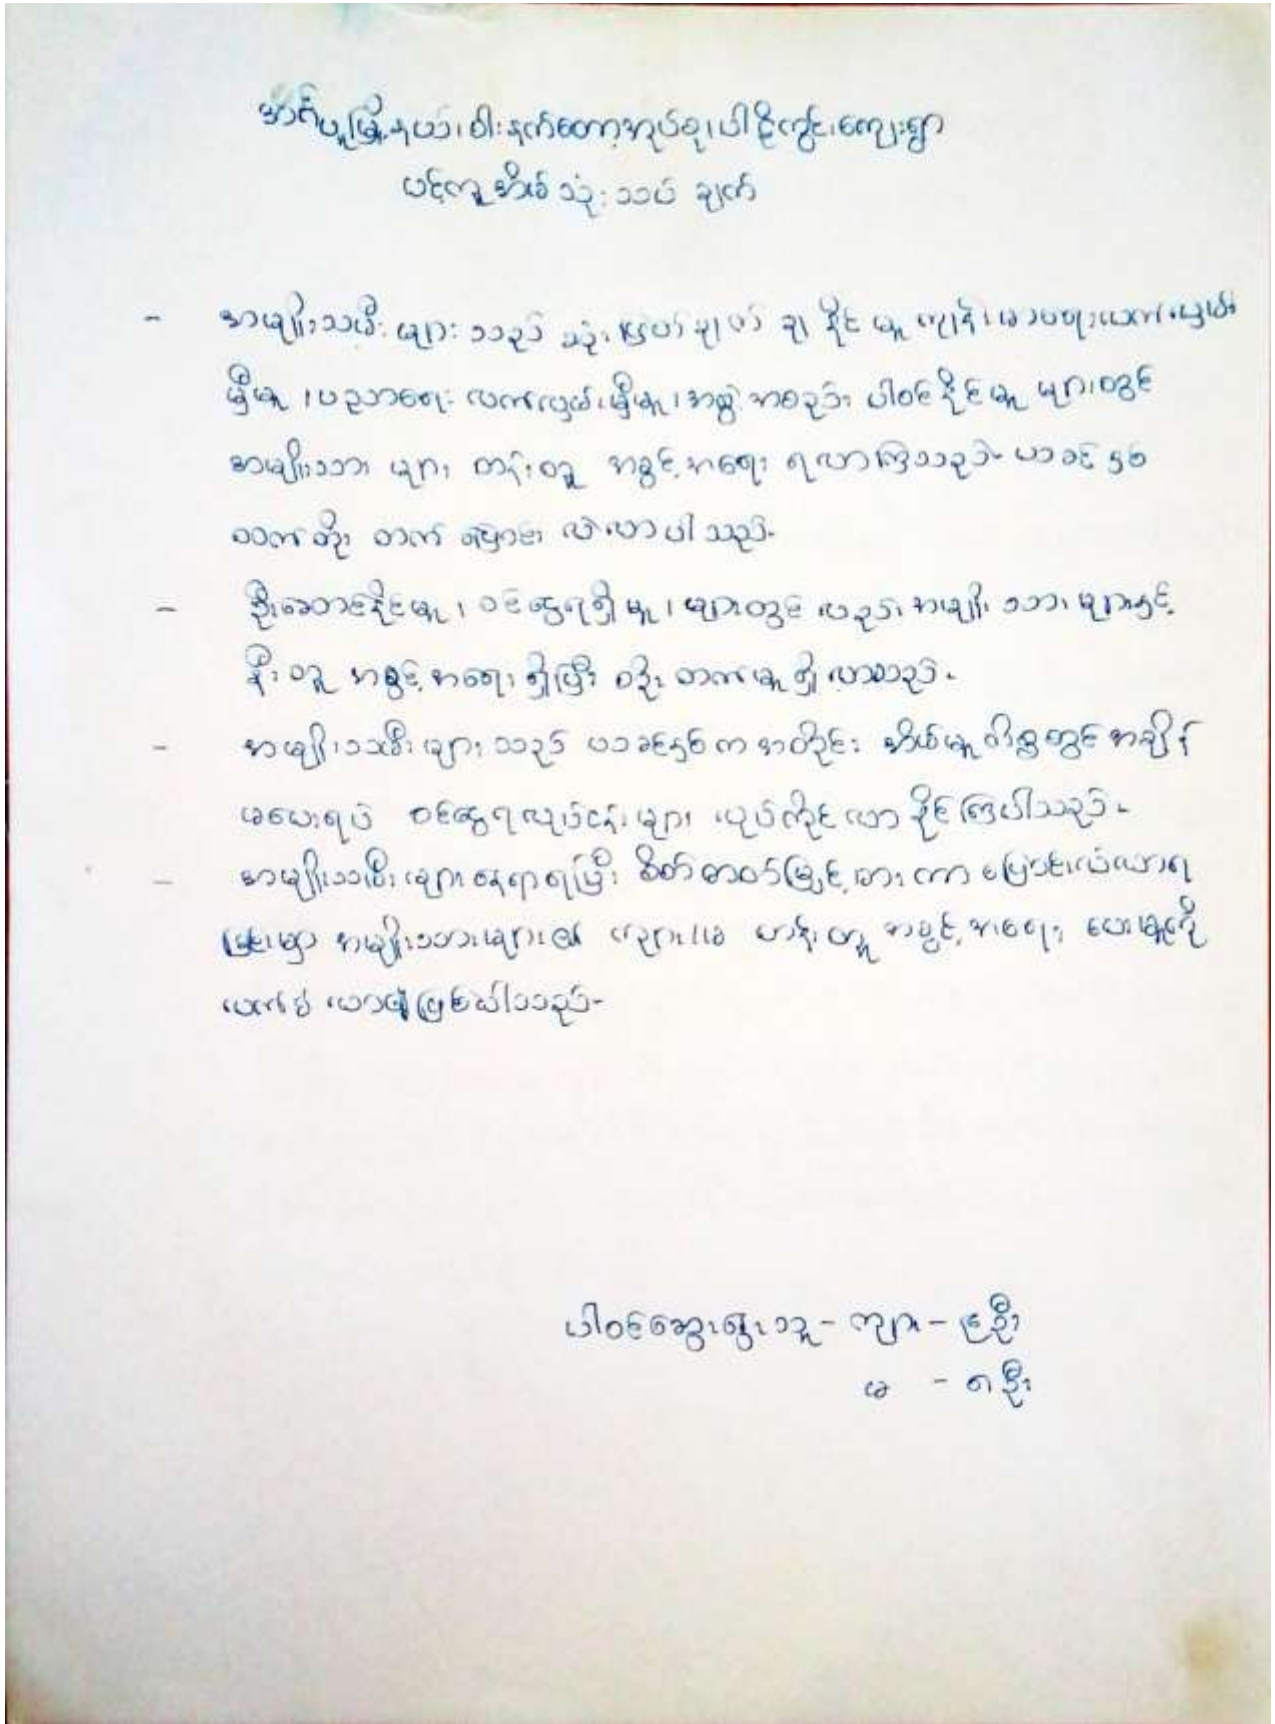 အင်္ဂပူမြို့နယ်၊ ဝါးနက်တောအုပ်စု၊ ပါဠိကွင်းကျေးရွာ
သုံးသပ်ချက်
- အမျိုးသမီးများသည် ဆုံးဖြတ်ချက်ချနိုင်မှု၊ ကျန်းမာရေးလက်လှမ်း
မှီမှု၊ ပညာရေးလက်လှမ်းမှီမှု၊ အဖွဲ့အစည်းပါဝင်နိုင်မှုများတွင်
အမျိုးသားများ တန်းတူ အခွင့်အရေး ရလာကြသည်- ယခင်နှစ်
ထက် တိုးတက် ပြောင်းလဲလာပါသည်-
- ဦးဆောင်နိုင်မှု၊ ဝင်ငွေရရှိမှု၊ များတွင်လည်း အမျိုးသားများနှင့်
နီးတူ အခွင့်အရေးရှိပြီး တိုးတက်မှုရှိလာသည်-
- အမျိုးသမီးများသည် ယခင်နှစ်ကအတိုင်း အိမ်မှုကိစ္စတွင်အချိန်
မပေးရပဲ ဝင်ငွေရလုပ်ငန်းများ လုပ်ကိုင်လာနိုင်ကြပါသည်-
- အမျိုးသမီးများနေရာရပြီး စိတ်ဓာတ်မြှင့်မားကာ ပြောင်းလဲလာရ
ခြင်းမှာ အမျိုးသားများ၏ ကျား/မ တန်းတူ အခွင့်အရေး ပေးမှုကို
လက်ခံလာ၍ဖြစ်ပါသည်-
ပါဝင်ဆွေးနွေးသူ - ကျား - ဦး
မ - ဦး